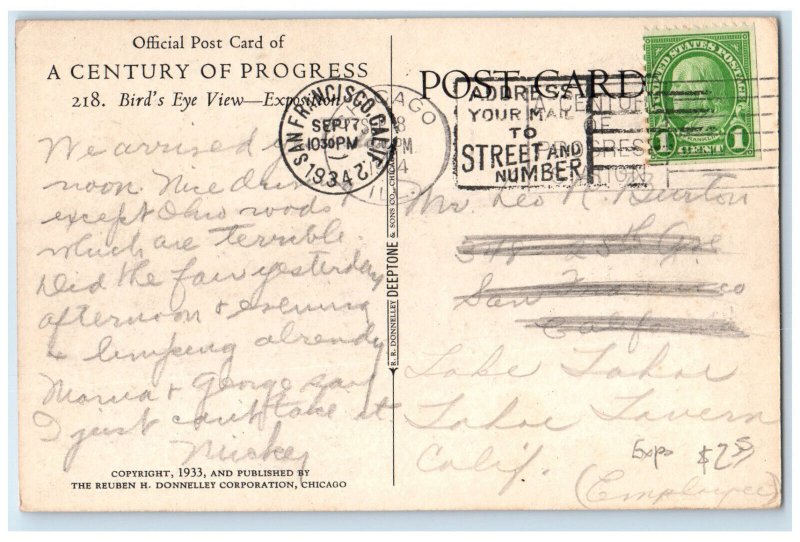 Official Post Card of
A CENTURY OF PROGRESS
218. Bird's Eye View—Exposition
We arrived
noon. Nice
except Ohio roads
which are terrible.
Did the fair yesterday
afternoon + evening
+ limping already
+ George said
I just can't take it
Mickey
COPYRIGHT, 1933, AND PUBLISHED BY
THE REUBEN H. DONNELLEY CORPORATION, CHICAGO
R. R. DONNELLEY DEEPTONE & SONS CO., CHICAGO
POST CARD
SAN FRANCISCO, CALIF.
SEP 17
10 30 PM
1934
ADDRESS
YOUR MAIL
TO
STREET AND
NUMBER
UNITED STATES POSTAGE
FRANKLIN
1 CENT 1
Mr. Leo R. Burton
25th Ave
San Francisco
California
Lake Tahoe
Tahoe Tavern
Calif.
(Employee)
Expo $2